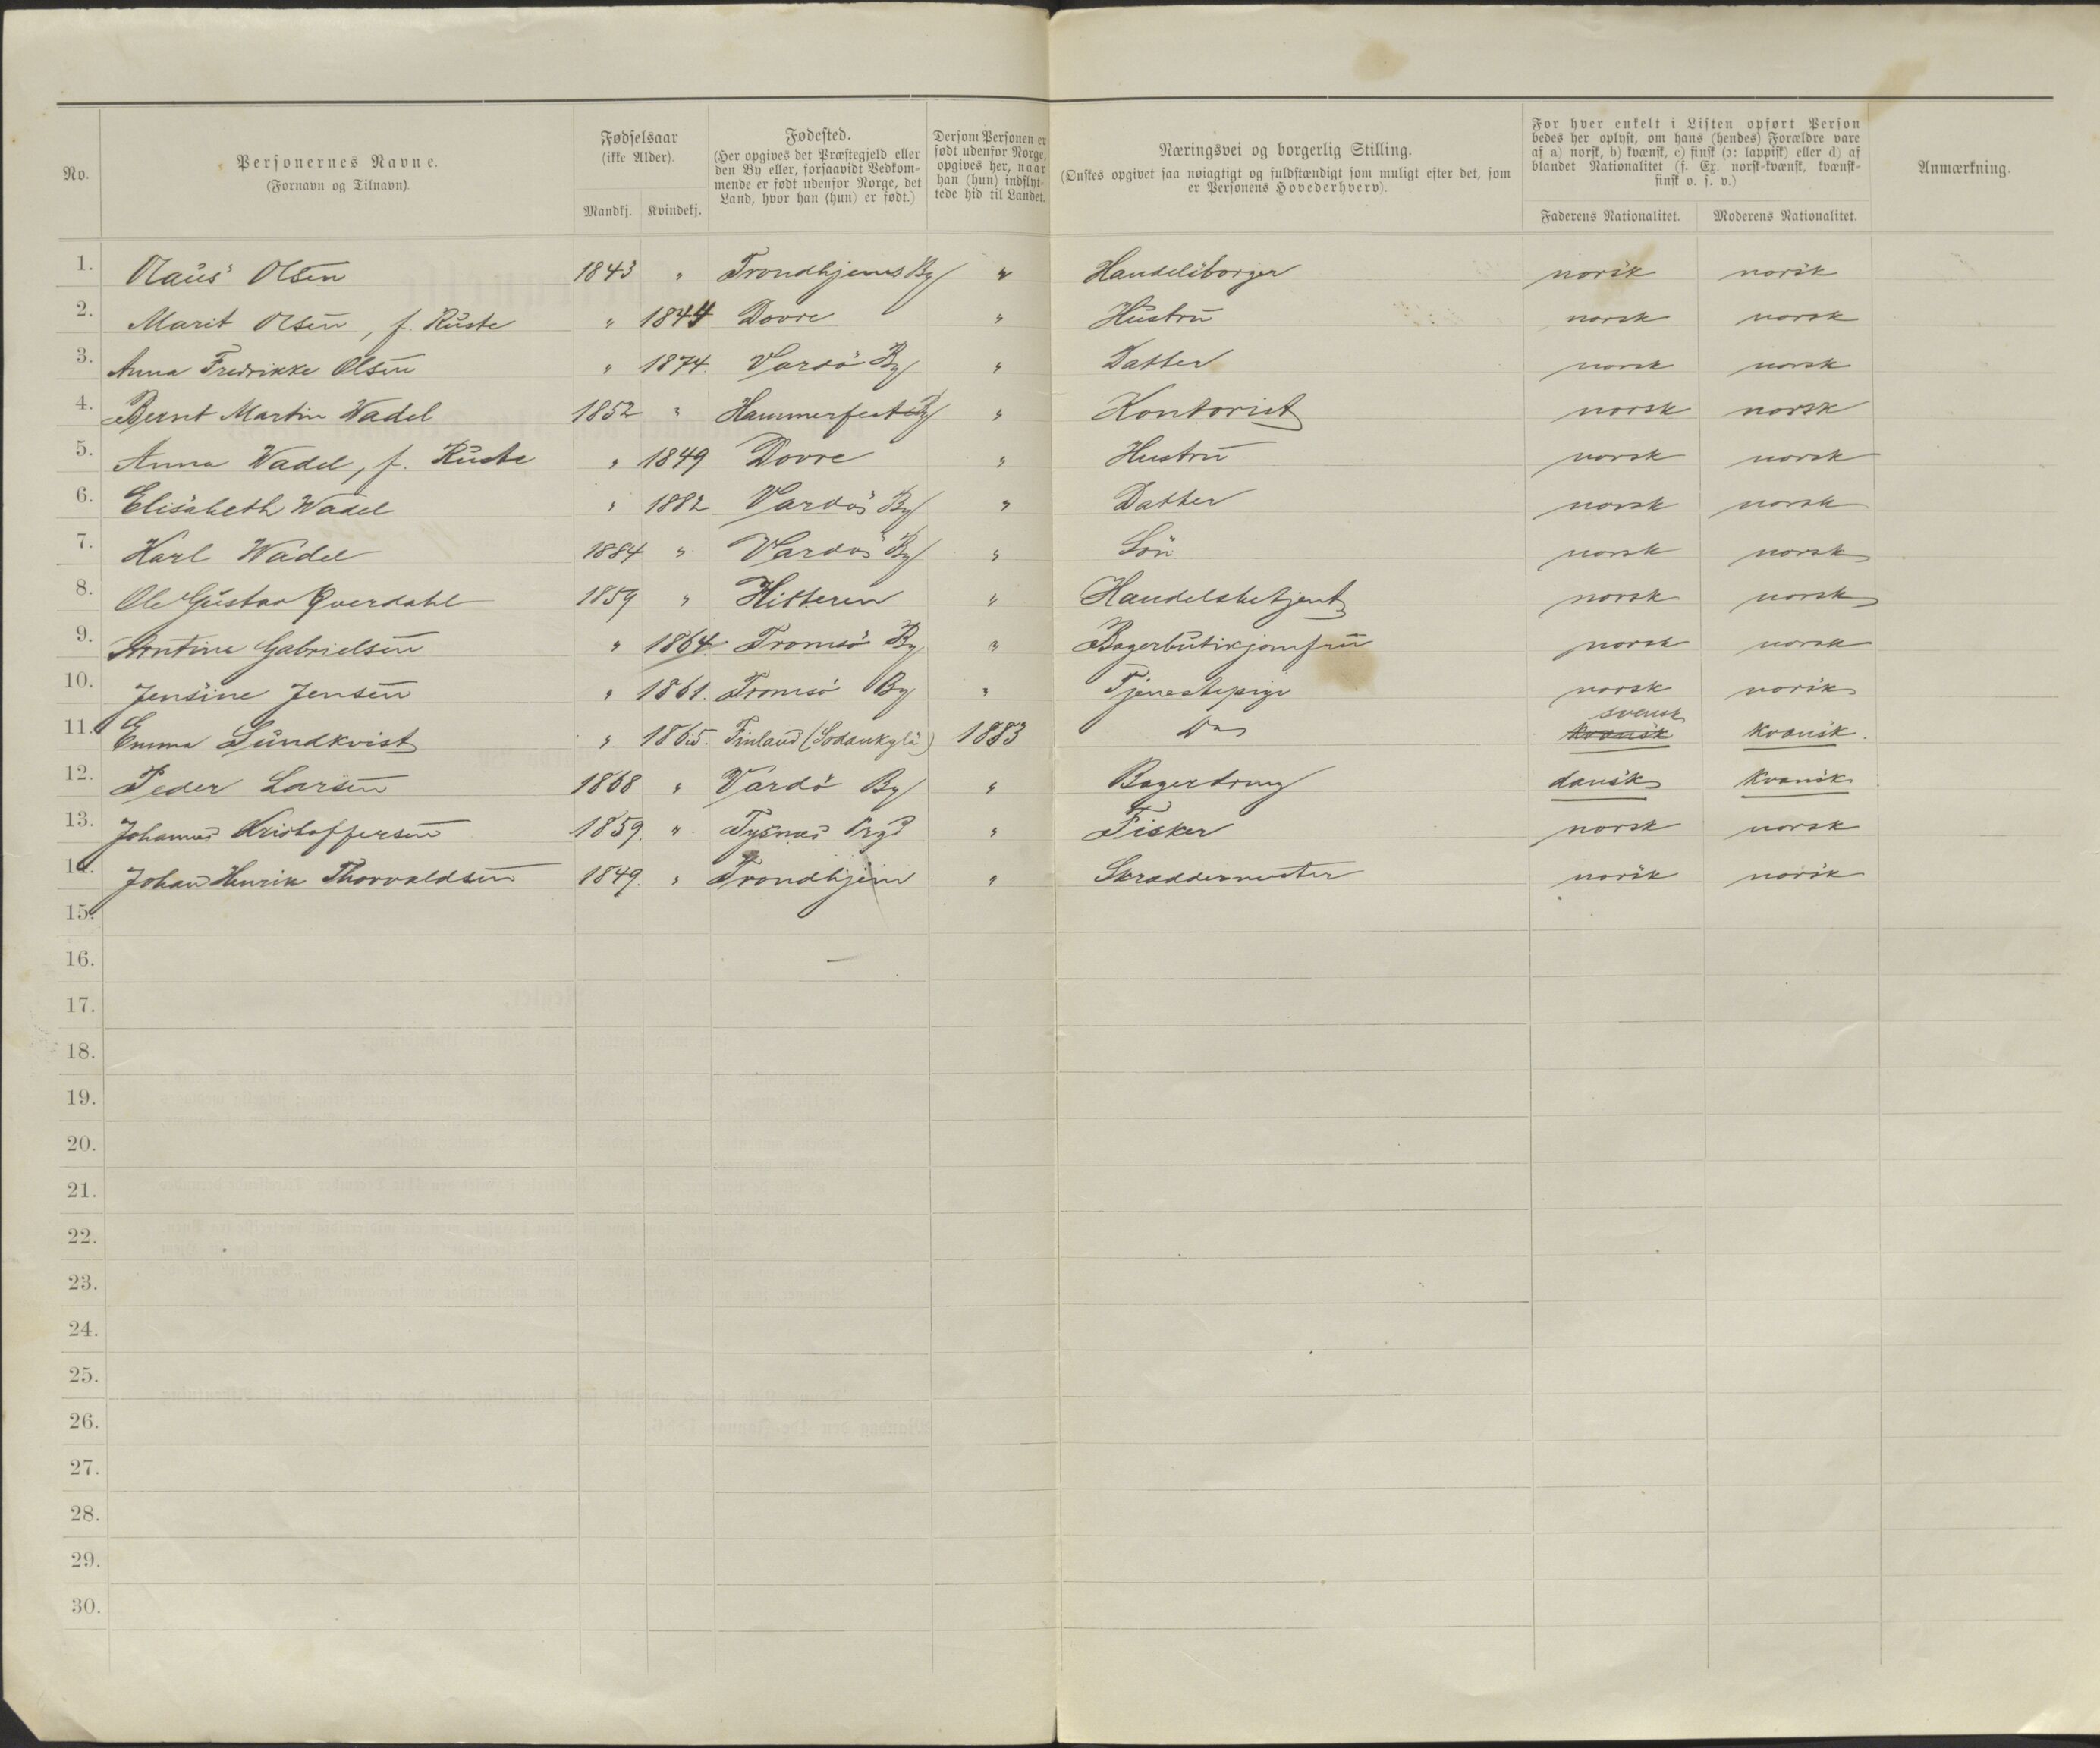 No.
Personernes Navne.
(Fornavn og Tilnavn).
Fødselsaar
(ikke Alder).
Mandkj. Kvindekj.
Fødested.
(Her opgives det Præstegjeld eller
den By eller, forsaavidt Vedkom-
mende er født udenfor Norge, det
Land, hvor han (hun) er født.)
Dersom Personen er
født udenfor Norge,
opgives her, naar
han (hun) indflyt-
tede hid til Landet.
Næringsvei og borgerlig Stilling.
(Ønskes opgivet saa nøiagtigt og fuldstændigt som muligt efter det, som
er Personens Hovederhverv).
For hver enkelt i Listen opført Person
bedes her oplyst, om hans (hendes) Forældre vare
af a) norsk, b) kvænsk, c) finsk (ɔ: lappisk) eller d) af
blandet Nationalitet (f. Ex. norsk-kvænsk, kvænsk-
finsk o. s. v.)
Faderens Nationalitet. Moderens Nationalitet.
Anmærkning.
1. Olaus Olsen 1843 " Trondhjems By " Handelsborger norsk norsk
2. Marit Olsen, f. Ruste " 1844 Dovre " Hustru norsk norsk
3. Anna Fredrikke Olsen " 1874. Vardö By " Datter norsk norsk
4. Bernt Martin Wadel 1852 " Hammerfest By " Kontorist norsk norsk
5. Anna Wadel, f. Ruste " 1849 Dovre " Hustru norsk norsk
6. Elisabeth Wadel " 1882 Vardö By " Datter norsk norsk
7. Karl Wadel 1884 " Vardö By " Sön norsk norsk
8. Ole Gustav Qverdahl 1859 " Hitteren " Handelsbetjent norsk norsk
9. Arntine Gabrielsen " 1864. Tromsö By " Bagerbutikjomfru norsk norsk
10. Jensine Jensen " 1861. Tromsö By " Tjenestepige norsk norsk
svensk
11. Emma Sundkvist " 1865. Finland (Sodankylä) 1883 Do kvænsk kvænsk.
12. Peder Larsen 1868 " Vardö By " Bagerdreng dansk kvænsk
13. Johannes Kristoffersen 1859. " Tysnæs " Fisker norsk norsk
14. Johan Henrik Thorvaldsen 1849. " Trondhjem " Skræddermester norsk norsk
15.
16.
17.
18.
19.
20.
21.
22.
23.
24.
25.
26.
27.
28.
29.
30.